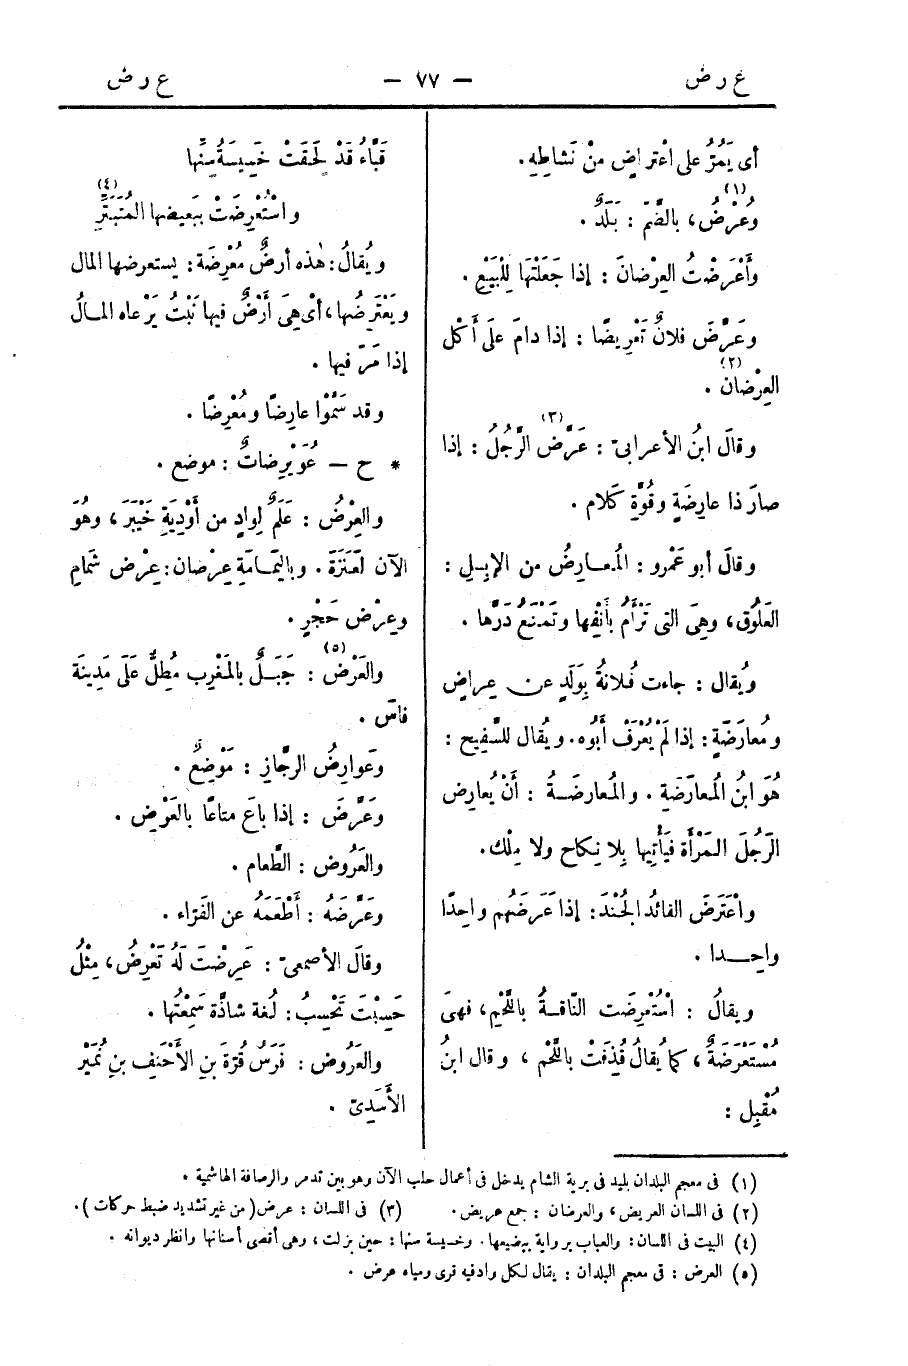 ع ر ض — ٧٧ — ع ر ض
أى يَمُرُّ على اعْتراضٍ منْ نَشاطِهِ.
وعُرْضُ(١)، بالضَّمّ : بَلَدٌ .
وأَعْرَضْتُ العِرْضانَ : إذا جَعَلْتَها لِلْبَيْعِ .
وعَرَّضَ فلانٌ تَعْرِيضًا : إذا دامَ عَلَى أَكْل
العِرْضان(٢) .
وقالَ ابنُ الأعرابىّ : عَرَّض(٣) الرَّجُلُ : إذا
صارَ ذا عارِضَةٍ وقُوَّةِ كَلام .
وقالَ أبو عَمْرو : المُعارِضُ من الإبِلِ :
العَلُوق، وهِىَ التى تَرْأَمُ بأَنْفِها وتَمْنَعُ دَرَّها .
ويُقال : جاءت فُلانةُ بِوَلَدٍ عن عِراضٍ
ومُعارَضَةٍ : إذا لَمْ يُعْرَفْ أَبُوه. ويُقال للسَّفِيح :
هُوَ ابنُ المُعارَضَةِ . والمُعارضَةُ : أَنْ يُعارِض
الرَّجُلَ المَرْأة فيَأْتِيها بِلا نِكاح ولا مِلْك.
واعْتَرَضَ القائدُ الجُنْدَ : إذا عَرَضَهُم واحِدًا
واحِدا .
ويقالُ : اسْتُعْرِضَت النّاقةُ باللَّحْمِ، فهىَ
مُسْتَعْرَضَةٌ، كما يُقالُ قُذِفَتْ باللَّحْم ، وقال ابنُ
مُقْبِل :
قَبَّاءُ قَدْ لَحِقَتْ خَسِيسَةُ سِنِّها
واسْتُعْرِضَتْ ببَعيضِها المُتَبَتِّرِ(٤)
ويُقالُ : هٰذه أرضٌ مُعْرِضَة : يستعرضها المال
ويَعْتَرِضُها، أىْ هِىَ أَرْضٌ فيها نَبْتُ يَرْعاه المالُ
إذا مَرّ فيها .
وقد سَمَّوْا عارِضًا ومُعْرِضًا .
* ح — عُوَيْرِضاتٌ : موضع .
والعِرْضُ : عَلَمٌ لِوادٍ من أَوْدِيَةِ خَيْبَرَ ، وهُوَ
الآن لعَنَزَةَ . وباليَمامَةِ عِرْضان : عِرْض شَمامِ
وعِرْض حَجْرٍ .
والعَرْضُ(٥) : جَبَلٌ بالمَغْرِب مُطِلٌّ عَلَى مَدِينَة
فاسَ .
وعَوارِضُ الرجّازِ : مَوْضِعٌ .
وعَرَّضَ : إذا باعَ متاعًا بالعَرْض .
والعَرُوض : الطَّعام .
وعَرَّضَهُ : أَطْعَمَهُ عن الفَرّاء .
وقالَ الأصمعىّ : عَرِضْتَ لَهُ تَعْرِضُ، مِثْلُ
حَسِبْتَ تَحْسِبُ : لُغة شاذَّة سَمِعْتُها .
والعَرُوض : فَرَسُ قُرّةَ بنِ الأَحْنَفِ بنِ نُمَيْرٍ
الأَسَدِىّ .
(١) فى معجم البلدان بليد فى برية الشام يدخل فى أعمال حلب الآن وهو بين تدمر والرصافة الهاشمية .
(٢) فى اللسان العريض، والعرضان : جمع عريض. (٣) فى اللسان : عرض (من غير تشديد ضبط حركات).
(٤) البيت فى اللسان : والعباب برواية ببضيعها. وخسيسة سنها : حين بزلت، وهى أقصى أسنانها وانظر ديوانه .
(٥) العرض : فى معجم البلدان : يقال لكل واد فيه قرى ومياه عرض .